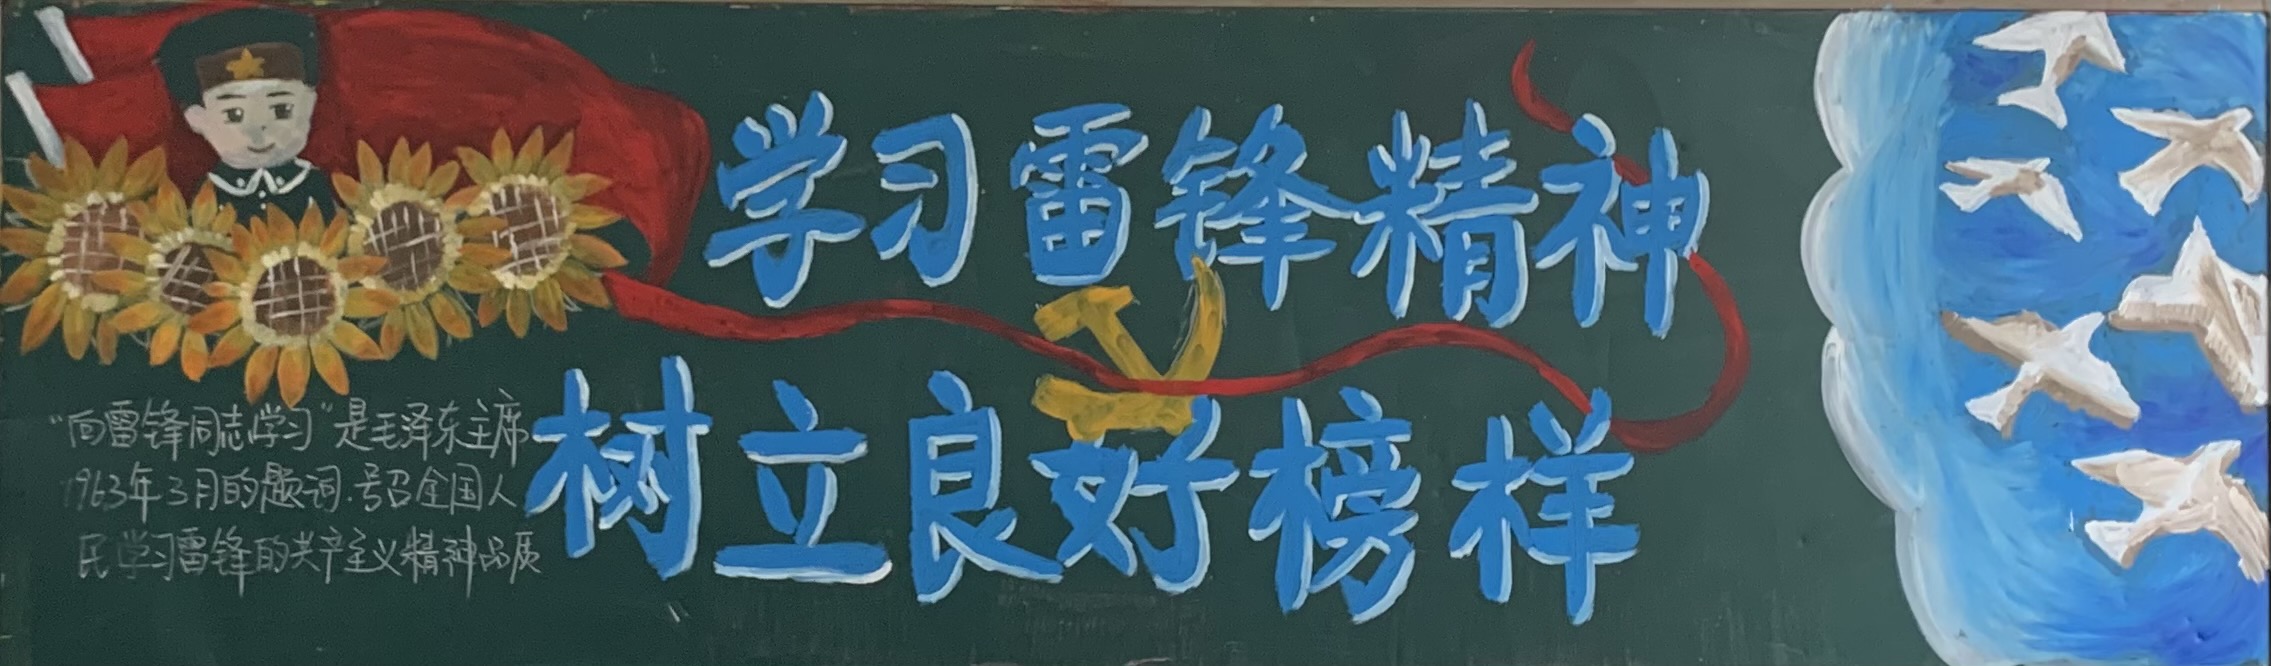 学习雷锋精神
树立良好榜样
“向雷锋同志学习”是毛泽东主席
1963年3月的题词.号召全国人
民学习雷锋的共产主义精神品质